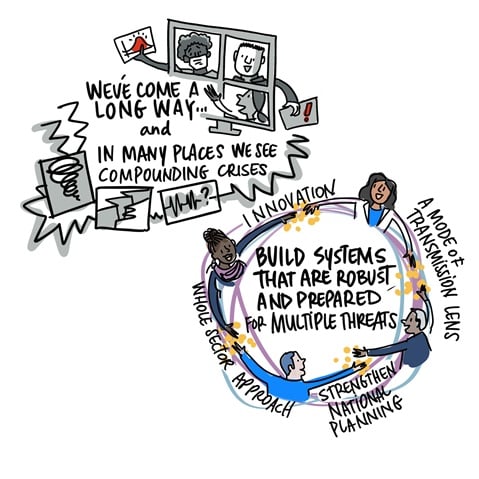 WE'VE COME A
LONG WAY...
and
IN MANY PLACES WE SEE
COMPOUNDING CRISES
!
?
INNOVATION
A MODE OF
TRANSMISSION LENS
BUILD SYSTEMS
THAT ARE ROBUST
AND PREPARED
FOR MULTIPLE THREATS
WHOLE SECTOR APPROACH
STRENGTHEN
NATIONAL
PLANNING